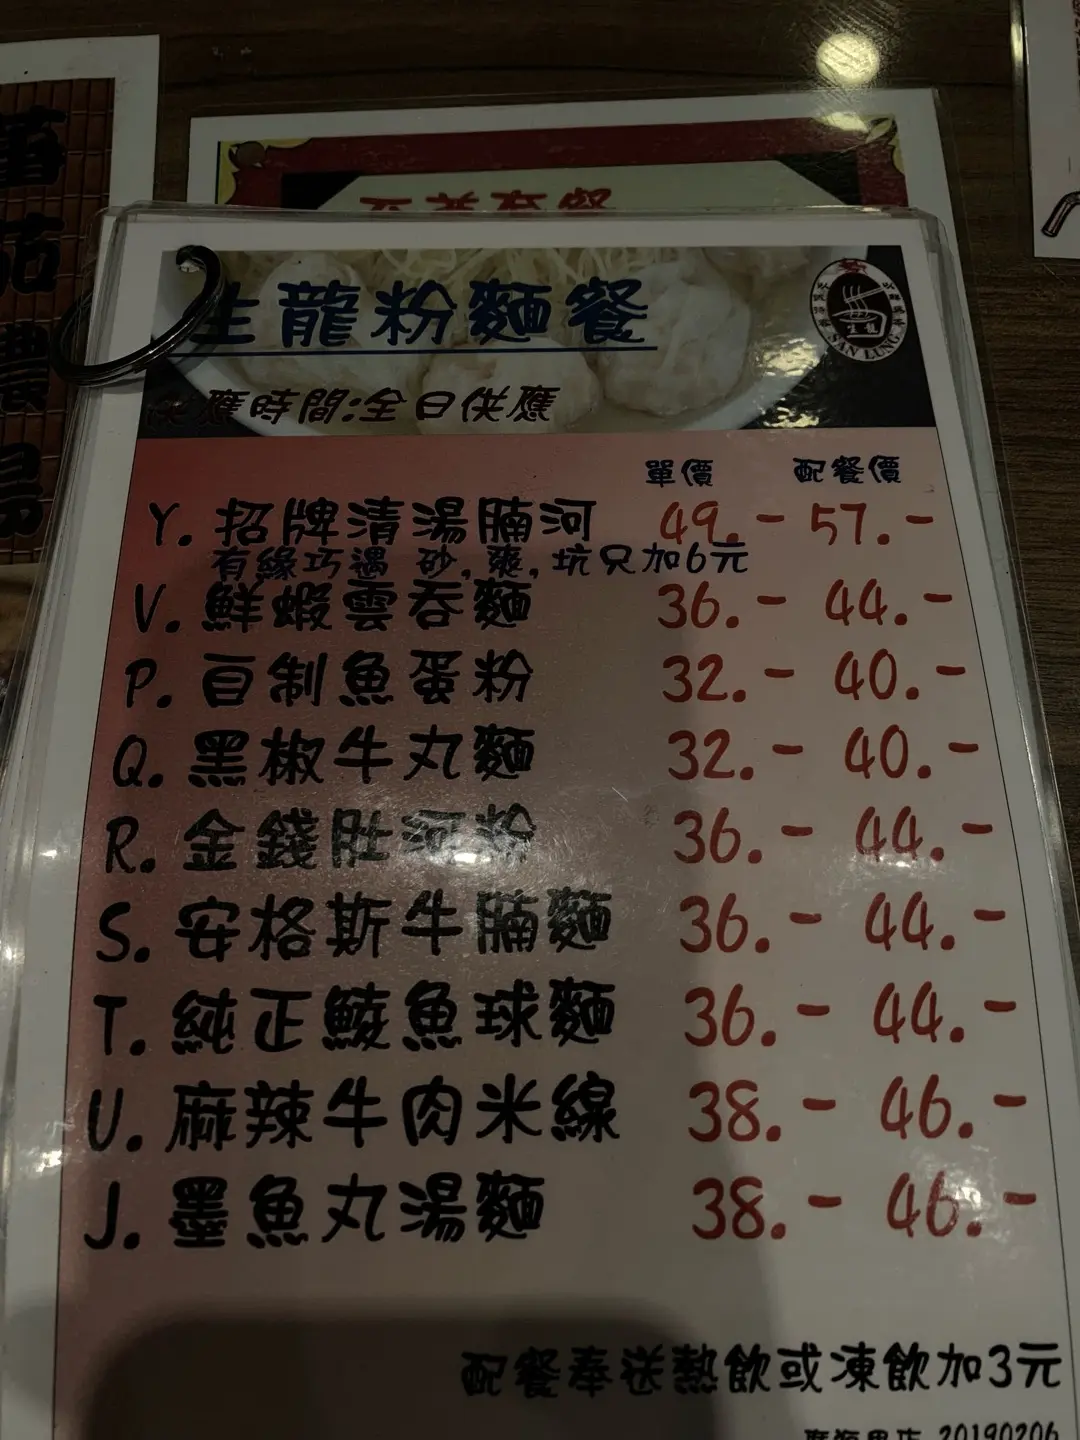 至尊套餐
生龍粉麵餐
SAN LUNG
供應時間:全日供應
單價 配餐價
Y. 招牌清湯腩河 49.- 57.-
有緣巧遇 砂,爽,坑只加6元
V. 鮮蝦雲吞麵 36.- 44.-
P. 自制魚蛋粉 32.- 40.-
Q. 黑椒牛丸麵 32.- 40.-
R. 金錢肚河粉 36.- 44.-
S. 安格斯牛腩麵 36.- 44.-
T. 純正鯪魚球麵 36.- 44.-
U. 麻辣牛肉米線 38.- 46.-
J. 墨魚丸湯麵 38.- 46.-
配餐奉送熱飲或凍飲加3元
20190206